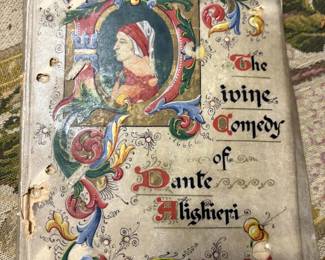 The
Divine
Comedy
of
Dante
Alighieri